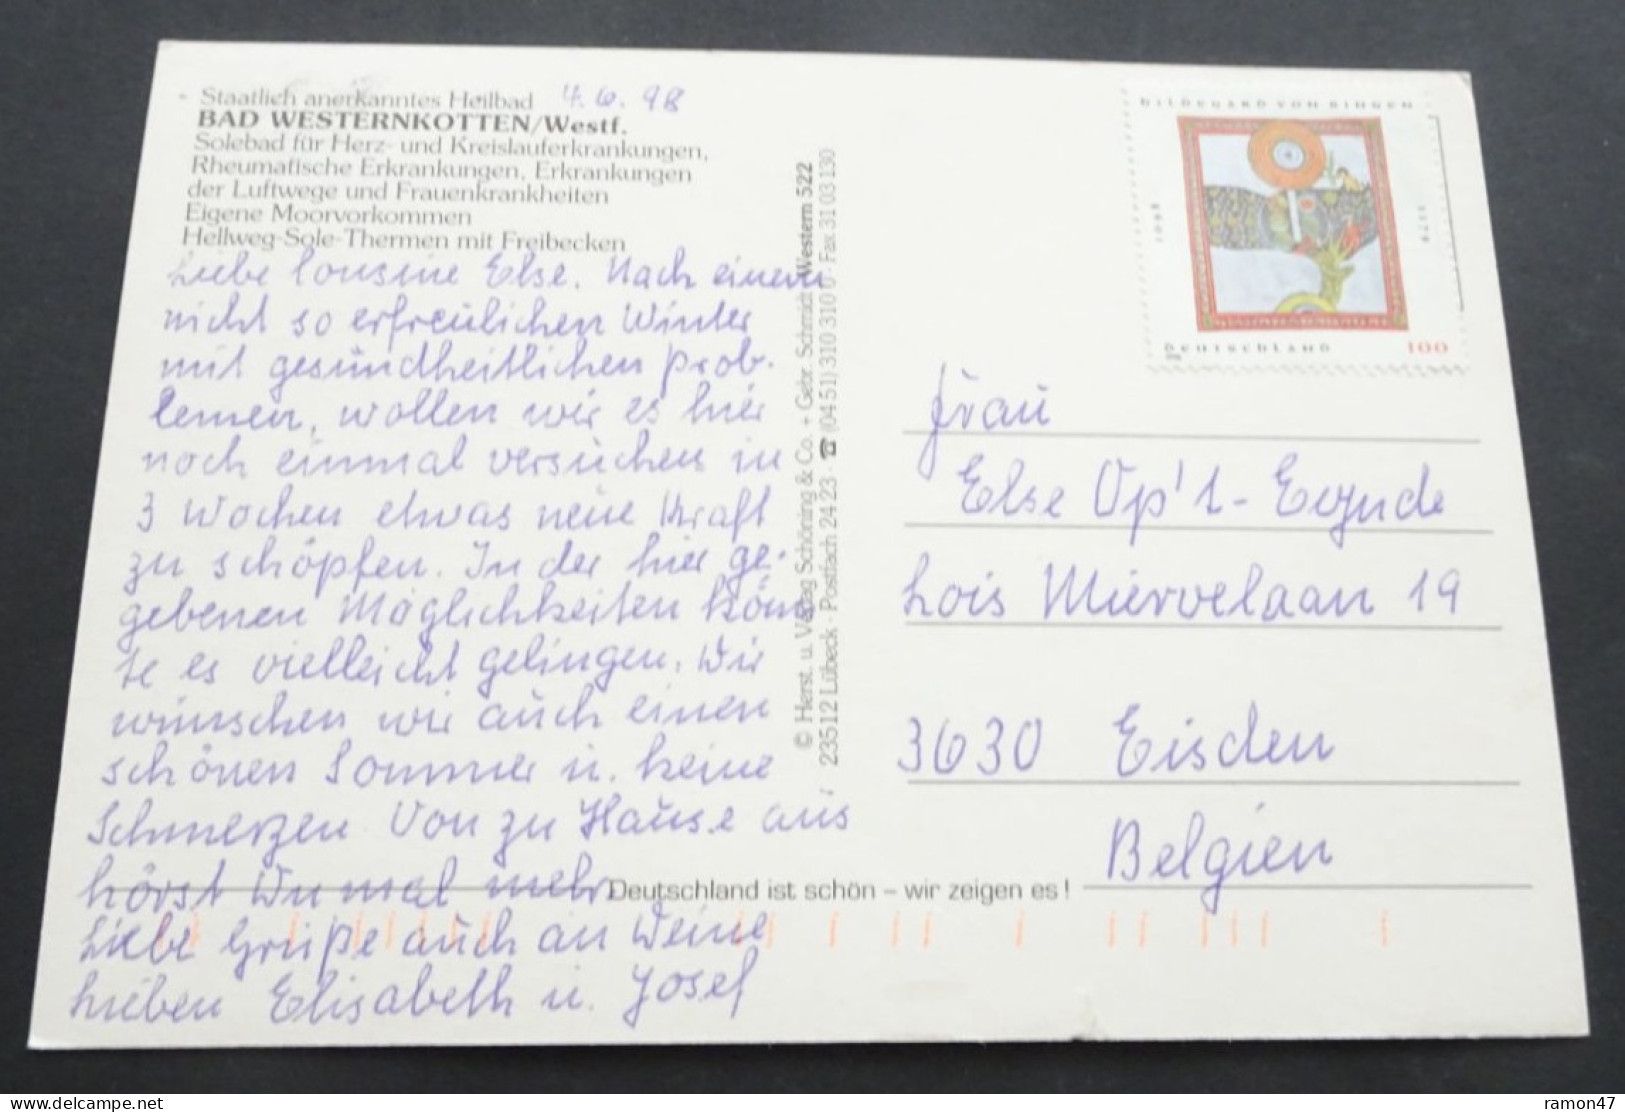 Staatlich anerkanntes Heilbad 4.6.98
BAD WESTERNKOTTEN/Westf.
Solebad für Herz- und Kreislauferkrankungen,
Rheumatische Erkrankungen, Erkrankungen
der Luftwege und Frauenkrankheiten
Eigene Moorvorkommen
Hellweg-Sole-Thermen mit Freibecken
Liebe Cousine Else. Nach einem
nicht so erfreulichen Winter
mit gesundheitlichen Prob-
lemen, wollen wir es hier
noch einmal versuchen in
3 Wochen etwas neue Kraft
zu schöpfen. In der hier ge-
gebenen Möglichkeiten könn
te es vielleicht gelingen. Wir
wünschen wir auch einen
schönen Sommer u. keine
Schmerzen Von zu Hause aus
hörst Du mal mehr.
Liebe Grüße auch an Deine
Lieben Elisabeth u. Josef
© Herst. u. Verlag Schöning & Co. + Gebr. Schmidt Western 522
23512 Lübeck · Postfach 24 23 · ☎ (04 51) 310 310 0 · Fax 31 03 130
Deutschland ist schön – wir zeigen es!
HILDEGARD VON BINGEN
1098
1179
DEUTSCHLAND 100
Frau
Else Op't-Eynde
Lois Miervelaan 19
3630 Eisden
Belgien
ramon47